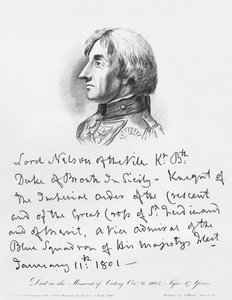 Lord Nelson of the Nile Kt. Bth.
Duke of Bronte In Sicily - Knight of
The Imperial order of the Crescent
and of the Great Cross of St. Ferdinand
and of Merit, a Vice admiral of the
Blue Squadron of His Majestys Fleet
January 11th. 1801 —
Died in the Moment of Victory Oct. 21 1805. Aged 47 Years